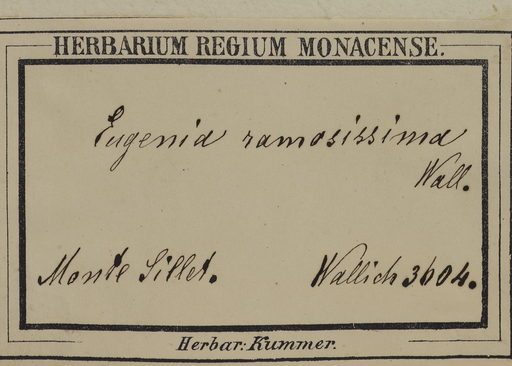 HERBARIUM REGIUM MONACENSE.
Eugenia ramosissima
Wall.
Monte Sillet. Wallich 3604.
Herbar: Kummer.